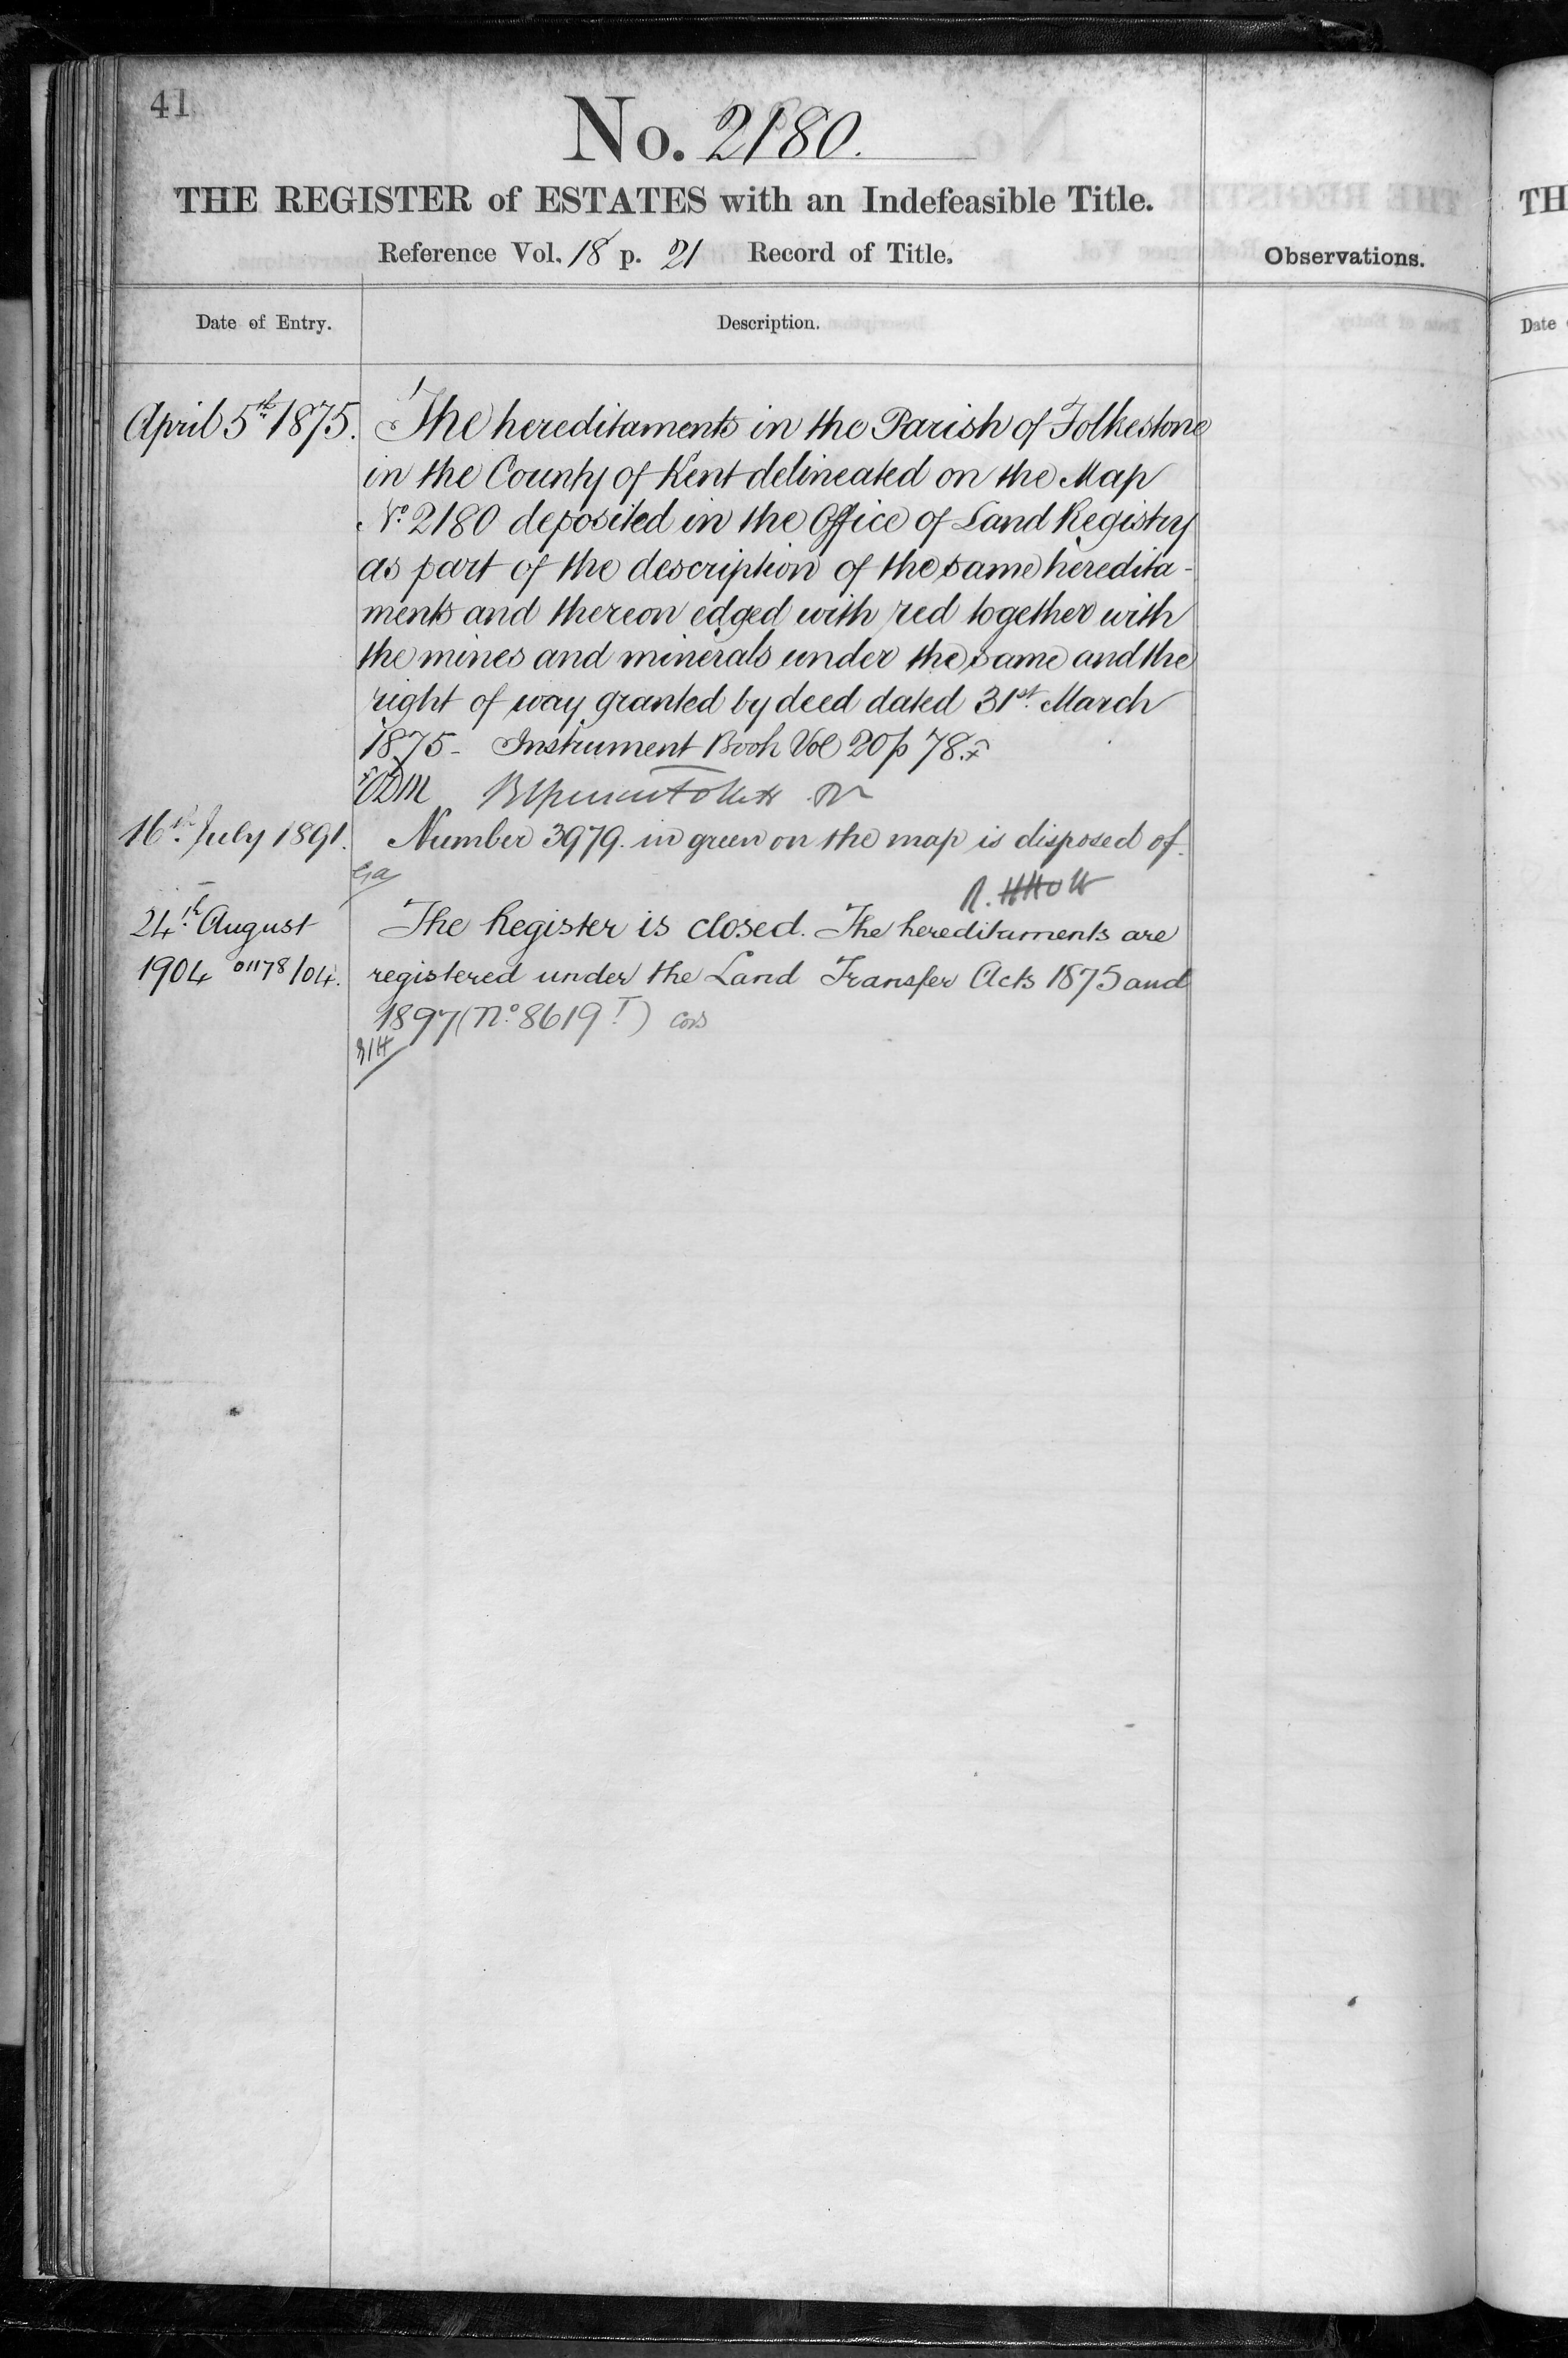 41
No. 2180.
THE REGISTER of ESTATES with an Indefeasible Title.
Reference Vol. 18 p. 21 Record of Title.
Observations.
Date of Entry.
Description.
April 5th 1875.
The hereditaments in the Parish of Folkestone
in the County of Kent delineated on the Map
No. 2180 deposited in the Office of Land Registry
as part of the description of the same heredita-
ments and thereon edged with red together with
the mines and minerals under the same and the
right of way granted by deed dated 31st. March
1875 - Instrument Book Vol 20 p 78.
16th July 1891.
Number 3979. in green on the map is disposed of.
R. H Holt
24th August
1904 01178/04.
The Register is closed. The hereditaments are
registered under the Land Transfer Acts 1875 and
1897 (No. 8619 I)
TH
Date